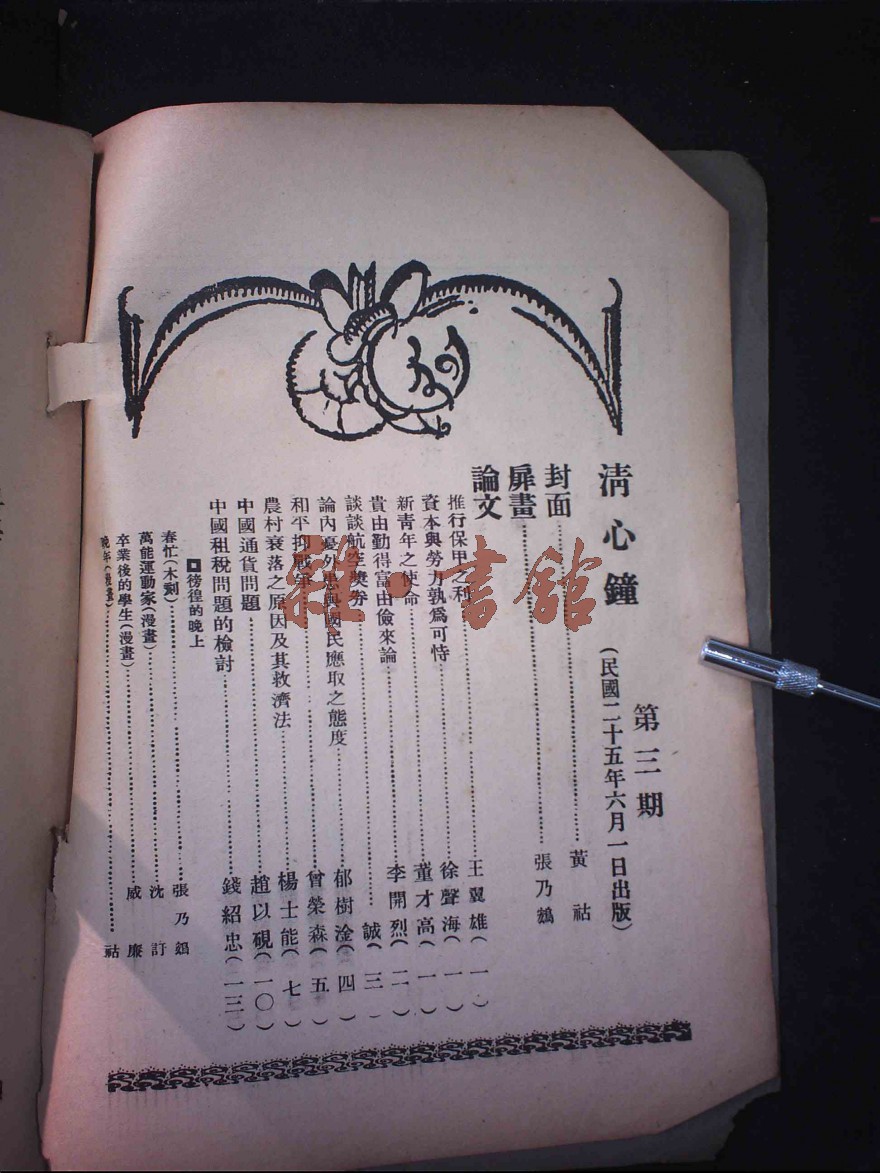 清心鐘
第三期
(民國二十五年六月一日出版)
封面 黃祜
扉畫 張乃鷄
論文
推行保甲之利 王翼雄(一)
資本與勞力孰爲可恃 徐聲海(一)
新青年之使命 董才高(一)
貴由勤得富由儉來論 李開烈(二)
談談航空獎券 誠(三)
論內憂外患與國民應取之態度 郁樹淦(四)
和平抑戰爭 曾榮森(五)
農村衰落之原因及其救濟法 楊士能(七)
中國通貨問題 趙以硯(一〇)
中國租稅問題的檢討 錢紹忠(一三)
■徬徨的晚上
春忙(木刻) 張乃鷄
萬能運動家(漫畫) 沈訂
卒業後的學生(漫畫) 威廉
晚年(漫畫) 祜
雜·書館